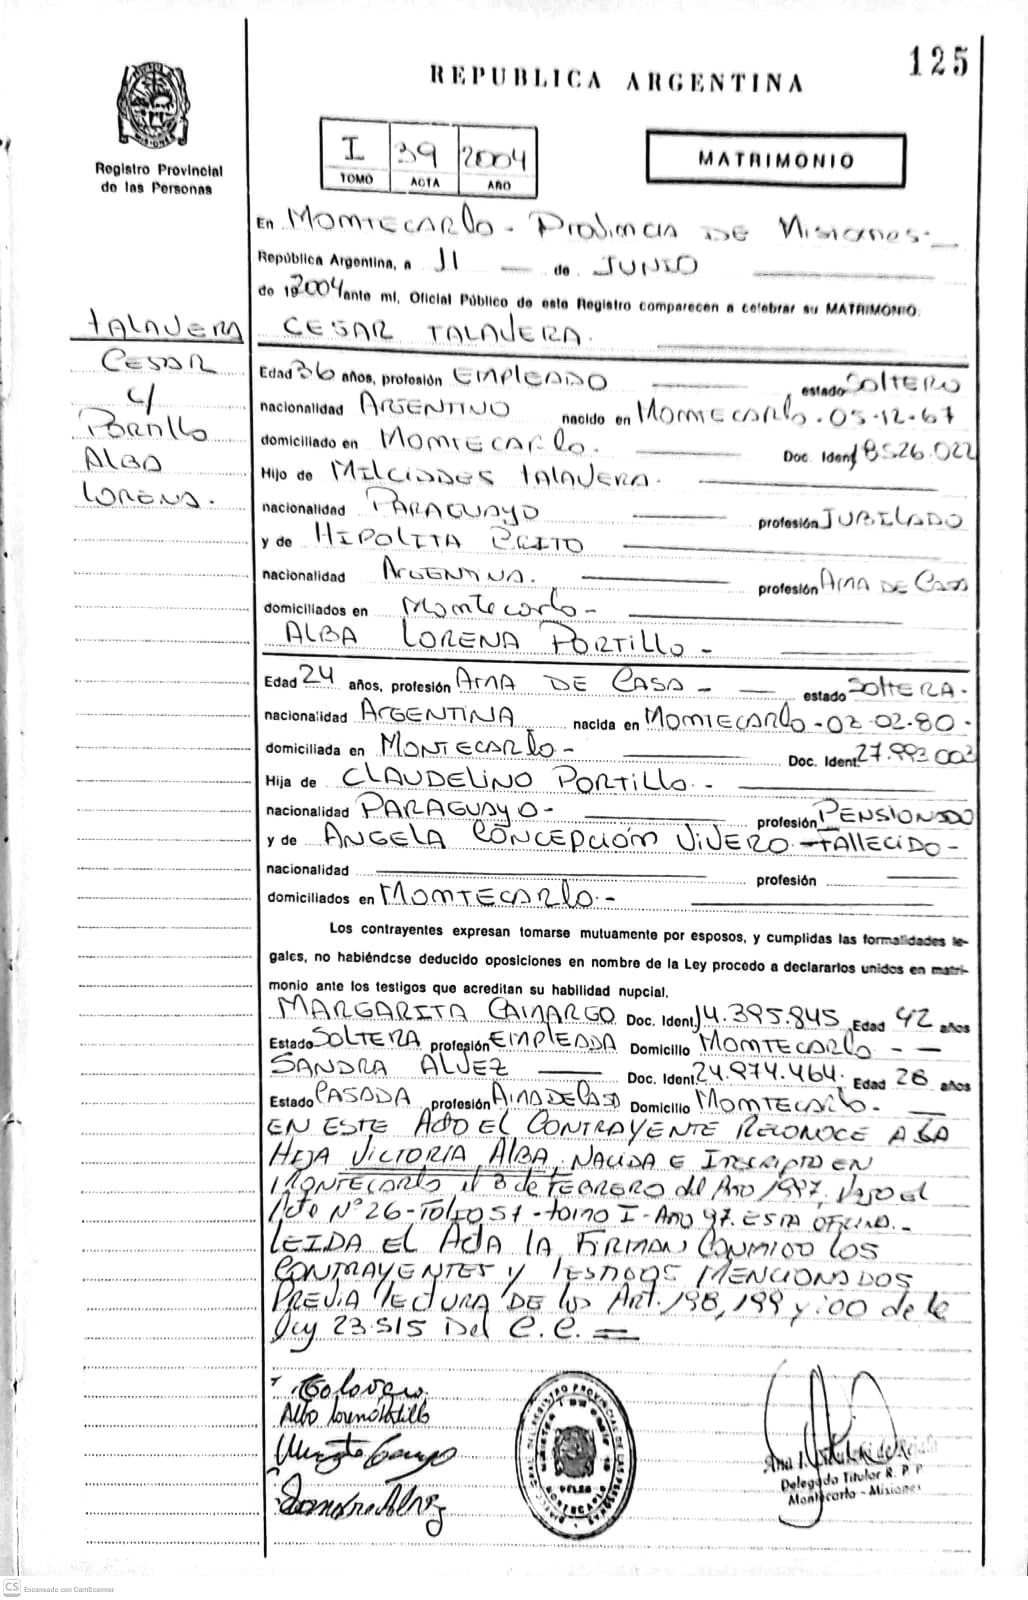 125
REPUBLICA ARGENTINA
MISIONES
Registro Provincial
de las Personas
I 39 2004
TOMO ACTA AÑO
MATRIMONIO
En MONTECARLO - PROVINCIA DE MISIONES.-
República Argentina, a 11 de JUNIO
de 19 2004 ante mí, Oficial Público de este Registro comparecen a celebrar su MATRIMONIO.
CESAR TALAVERA.
TALAVERA
CESAR
c/
PORTILLO
ALBA
LORENA.
Edad 36 años, profesión EMPLEADO estado SOLTERO
nacionalidad ARGENTINO nacido en MONTECARLO. 05-12-67
domiciliado en MONTECARLO. Doc. Ident 18526.022
Hijo de MILCIADES TALAVERA.
nacionalidad PARAGUAYO profesión JUBILADO
y de HIPOLITA BRITO
nacionalidad ARGENTINA. profesión AMA DE CASA
domiciliados en Montecarlo-
ALBA LORENA PORTILLO -
Edad 24 años, profesión AMA DE CASA - estado SOLTERA.
nacionalidad ARGENTINA nacida en MONTECARLO - 02-02-80-
domiciliada en MONTECARLO - Doc. Ident. 27.993.003
Hija de CLAUDELINO PORTILLO. -
nacionalidad PARAGUAYO - profesión PENSIONADO
y de ANGELA CONCEPCIÓN VIVERO - FALLECIDO -
nacionalidad profesión
domiciliados en MONTECARLO. -
Los contrayentes expresan tomarse mutuamente por esposos, y cumplidas las formalidades le-
gales, no habiéndose deducido oposiciones en nombre de la Ley procedo a declararlos unidos en matri-
monio ante los testigos que acreditan su habilidad nupcial.
MARGARITA CAMARGO Doc. Ident. 14.395.845 Edad 42 años
Estado SOLTERA profesión EMPLEADA Domicilio MONTECARLO - -
SANDRA ALVEZ Doc. Ident. 24.974.464. Edad 28 años
Estado CASADA profesión AMA DE CASA Domicilio MONTECARLO.
EN ESTE ACTO EL CONTRAYENTE RECONOCE A LA
HIJA VICTORIA ALBA, NACIDA E INSCRIPTO EN
MONTECARLO el 3 de FEBRERO del Año 1997, bajo el
Acta Nº 26 - FOLIO 51 - tomo I - Año 97. ESTA OFICINA. -
LEIDA EL ACTA LA FIRMAN CONMIGO LOS
CONTRAYENTES Y TESTIGOS MENCIONADOS
PREVIA LECTURA DE los ART. 198, 199 y 200 de la
ley 23.515 Del C.C. =
Talavera
Alba Lorena Portillo
Sandra Alvez
Delegado Titular R. P. P.
Montecarlo - Misiones
CS Escaneado con CamScanner